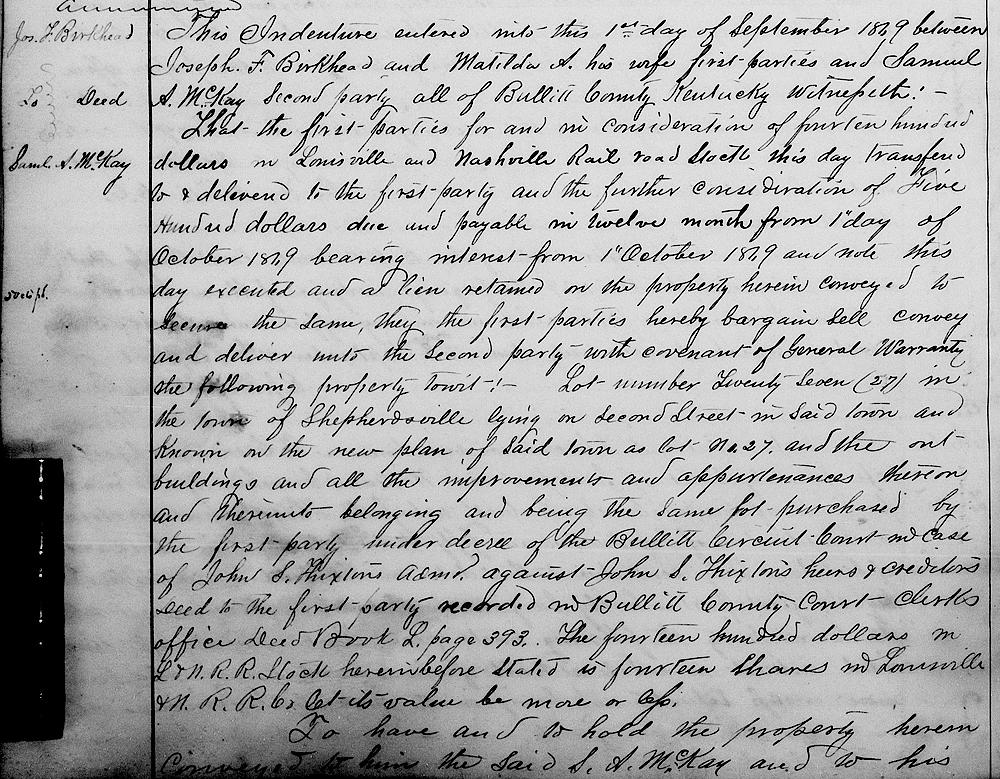 Jos. F. Birkhead
To Deed
Saml. A. McKay
This Indenture entered into this 1st day of September 1869 between
Joseph. F. Birkhead and Matilda A. his wife first parties and Samuel
A. McKay Second party all of Bullitt County Kentucky Witnesseth: -
That the first parties for and in consideration of fourteen hundred
dollars in Louisville and Nashville Rail road Stock this day transferd
to & deliverd to the first party and the further consideration of Five
Hundred dollars due and payable in twelve month from 1st day of
October 1869 bearing interest from 1st October 1869 and note this
day executed and a lien retained on the property herein conveyed to
Secure the same, they the first parties hereby bargain Sell convey
and deliver unto the Second party with covenant of General Warranty
the following property towit:- Lot number Twenty Seven (27) in
the town of Shepherdsville lying on Second Street in Said town and
Known on the new plan of Said town as lot No. 27. and the out
buildings and all the improvements and appurtenances thereon
and thereunto belonging and being the same lot purchased by
the first party under decree of the Bullitt Circuit Court in Case
of John S. Thixtons Admr. against John S. Thixtons heirs & creditors
Deed to the first party recorded in Bullitt County Court Clerks
office Deed Book L. page 393. The fourteen hundred dollars in
L & N. R. R. Stock hereinbefore Stated is fourteen Shares in Louisville
& N. R. R. Co let its value be more or less.
To have and to hold the property herein
Conveyed to him the Said S. A. McKay and to his